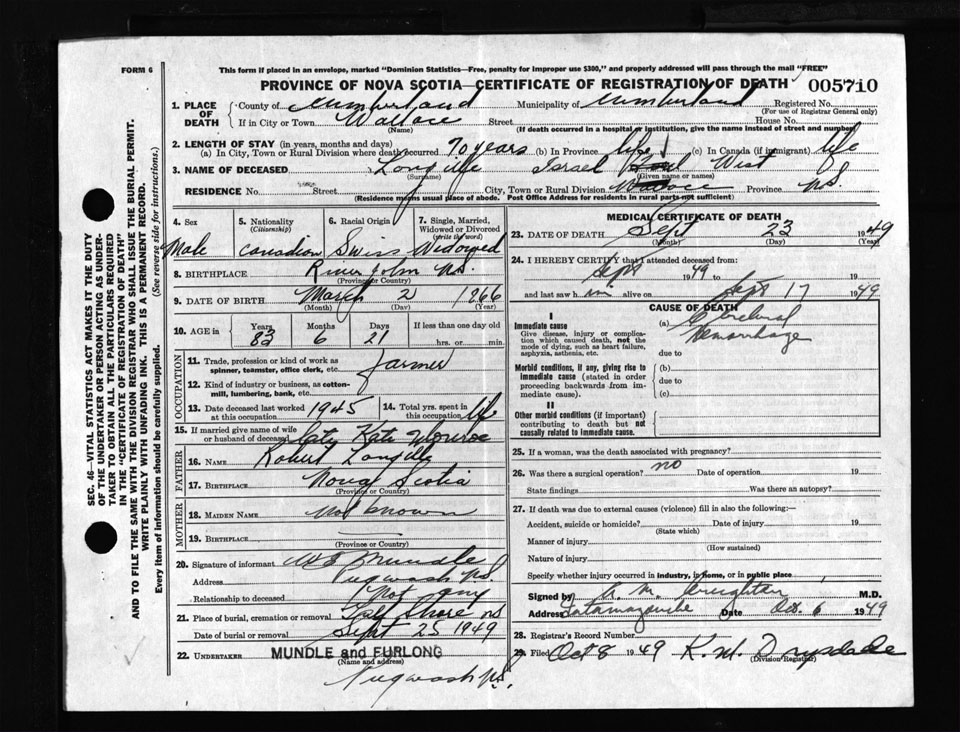 FORM 6
This form if placed in an envelope, marked "Dominion Statistics—Free, penalty for improper use $300," and properly addressed will pass through the mail "FREE"
PROVINCE OF NOVA SCOTIA—CERTIFICATE OF REGISTRATION OF DEATH 005710
1. PLACE OF DEATH
County of Cumberland Municipality of Cumberland Registered No.
(For use of Registrar General only)
If in City or Town Wallace Street House No.
(Name) (If death occurred in a hospital or institution, give the name instead of street and number)
2. LENGTH OF STAY (in years, months and days)
(a) In City, Town or Rural Division where death occurred 70 years (b) In Province life (c) In Canada (if immigrant) life
3. NAME OF DECEASED Israel West
(Surname) (Given name or names)
RESIDENCE No. Street City, Town or Rural Division Wallace Province N.S.
(Residence means usual place of abode. Post Office Address for residents in rural parts not sufficient)
4. Sex Male
5. Nationality (Citizenship) Canadian
6. Racial Origin Swiss
7. Single, Married, Widowed or Divorced (write the word) Widowed
8. BIRTHPLACE River John N.S.
(Province or Country)
9. DATE OF BIRTH March 2 1866
(Month) (Day) (Year)
10. AGE in Years Months Days If less than one day old
83 6 21 hrs. or min.
OCCUPATION
11. Trade, profession or kind of work as spinner, teamster, office clerk, etc. farmer
12. Kind of industry or business, as cotton-mill, lumbering, bank, etc.
13. Date deceased last worked at this occupation 1945
14. Total yrs. spent in this occupation life
15. If married give name of wife or husband of deceased Kate
FATHER
16. Name Robert
17. Birthplace Nova Scotia
(Province or Country)
MOTHER
18. MAIDEN NAME not known
19. BIRTHPLACE
(Province or Country)
20. Signature of informant Mundle
Address Pugwash N.S.
Relationship to deceased Not any
21. Place of burial, cremation or removal Gulf Shore N.S.
Date of burial or removal Sept 25 1949
22. UNDERTAKER MUNDLE and FURLONG
(Name and address)
Pugwash N.S.
MEDICAL CERTIFICATE OF DEATH
23. DATE OF DEATH Sept 23 1949
(Month) (Day) (Year)
24. I HEREBY CERTIFY that I attended deceased from:
Sept 1949 to Sept 17 1949
and last saw h im alive on
CAUSE OF DEATH
I
Immediate cause
Give disease, injury or complication which caused death, not the mode of dying, such as heart failure, asphyxia, asthenia, etc.
(a) Cerebral
hemorrhage
due to
Morbid conditions, if any, giving rise to immediate cause (stated in order proceeding backwards from immediate cause).
(b)
due to
(c)
II
Other morbid conditions (if important) contributing to death but not causally related to immediate cause.
25. If a woman, was the death associated with pregnancy?
26. Was there a surgical operation? no Date of operation 19
State findings Was there an autopsy?
27. If death was due to external causes (violence) fill in also the following:—
Accident, suicide or homicide? Date of injury 19
(State which)
Manner of injury
(How sustained)
Nature of injury
Specify whether injury occurred in industry, in home, or in public place
Signed by M.D.
Address Tatamagouche Date Oct. 6 1949
28. Registrar's Record Number
29. Filed Oct 8 1949 K. M. Drysdale
(Division Registrar)
SEC. 46—VITAL STATISTICS ACT MAKES IT THE DUTY
OF THE UNDERTAKER OR PERSON ACTING AS UNDER-
TAKER TO OBTAIN ALL THE PARTICULARS REQUIRED
IN THE "CERTIFICATE OF REGISTRATION OF DEATH"
AND TO FILE THE SAME WITH THE DIVISION REGISTRAR WHO SHALL ISSUE THE BURIAL PERMIT.
WRITE PLAINLY WITH UNFADING INK. THIS IS A PERMANENT RECORD.
Every item of information should be carefully supplied. (See reverse side for instructions.)